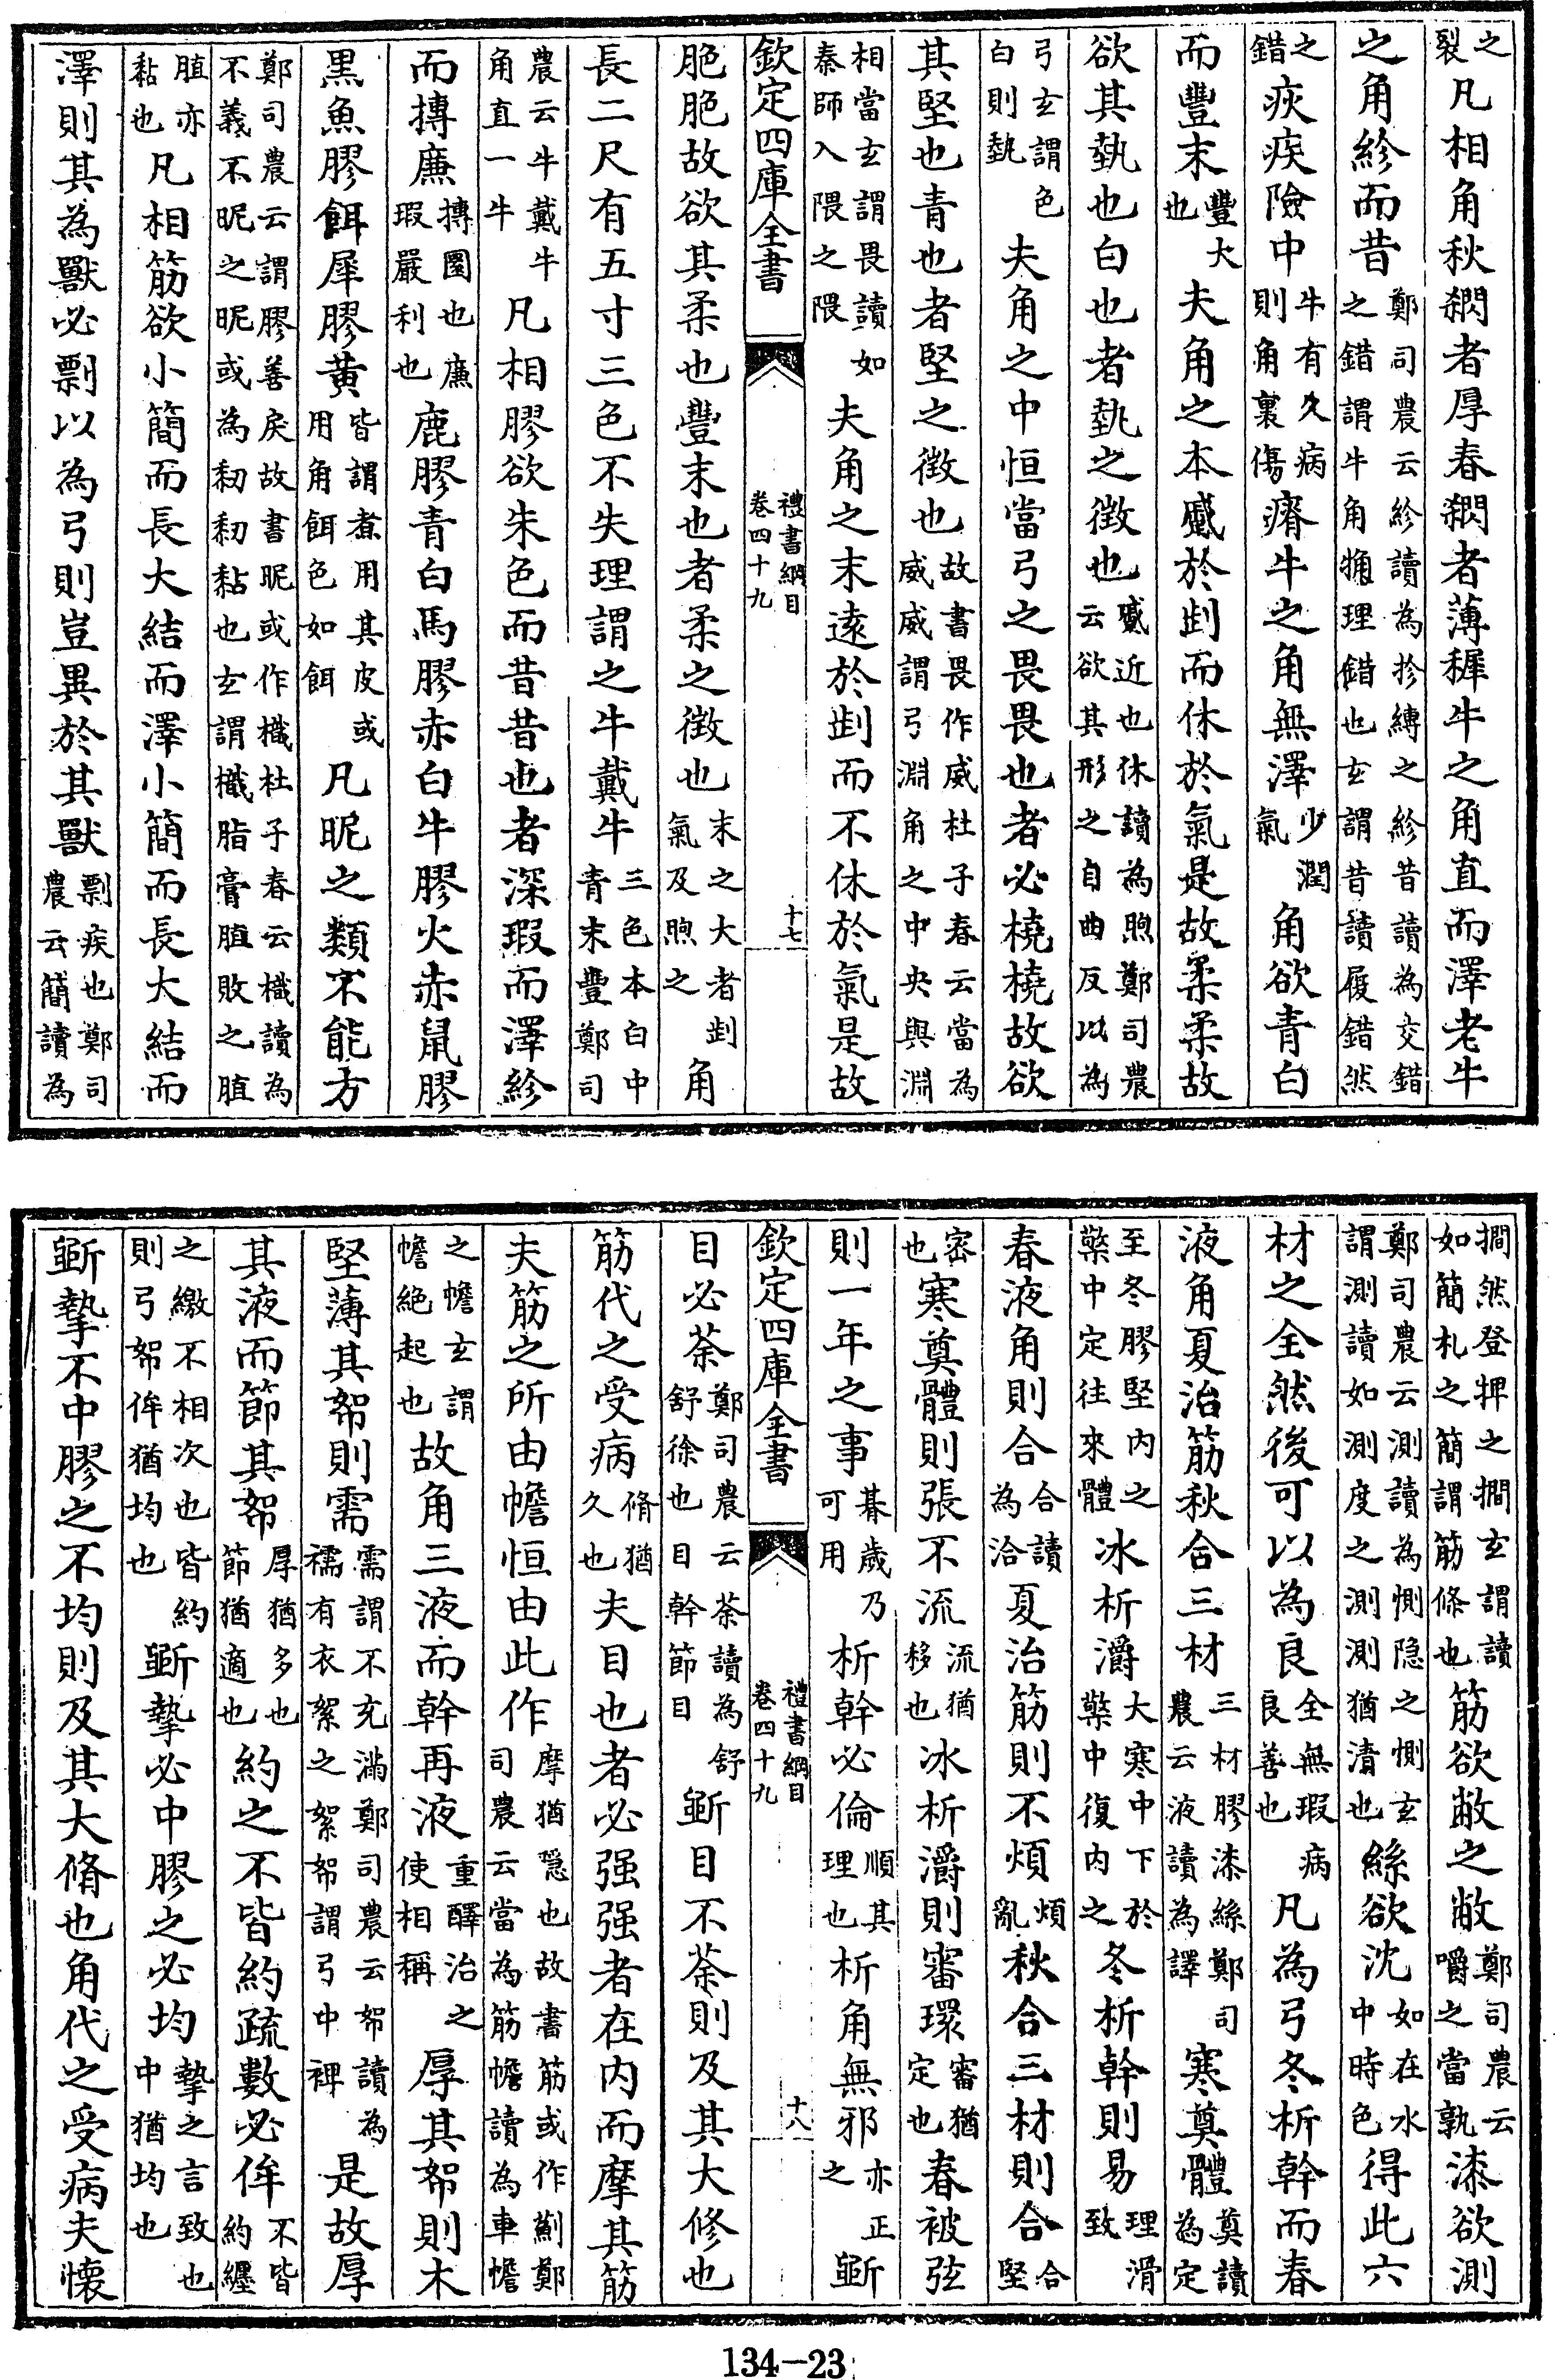 之裂凡相角秋閷者厚春閷者薄稺牛之角直而澤老牛
之角紾而昔鄭司農云紾讀為抮縛之紾昔讀為交錯之錯謂牛角觕理錯也玄謂昔讀履錯然
之錯疢疾險中牛有久病則角裏傷瘠牛之角無澤少潤氣角欲青白
而豐末豐大也夫角之本蹙於㓸而休於氣是故柔柔故
欲其埶也白也者埶之徵也蹙近也休讀為煦鄭司農云欲其形之自曲反以為
弓玄謂色白則埶夫角之中恒當弓之畏畏也者必橈橈故欲
其堅也青也者堅之徵也故書畏作威杜子春云當為威威謂弓淵角之中央與淵
相當玄謂畏讀如秦師入隈之隈夫角之末遠於㓸而不休於氣是故
欽定四庫全書 禮書綱目 卷四十九 十七
脃脃故欲其柔也豐末也者柔之徵也末之大者㓸氣及煦之角
長二尺有五寸三色不失理謂之牛戴牛三色本白中青末豐鄭司
農云牛戴牛角直一牛凡相膠欲朱色而昔昔也者深瑕而澤紾
而摶廉摶圜也廉瑕嚴利也鹿膠青白馬膠赤白牛膠火赤鼠膠
黑魚膠餌犀膠黃皆謂煮用其皮或用角餌色如餌凡昵之類不能方
鄭司農云謂膠善戾故書昵或作樴杜子春云樴讀為不義不昵之昵或為䵑䵑黏也玄謂樴脂膏䐈敗之䐈
䐈亦黏也凡相筋欲小簡而長大結而澤小簡而長大結而
澤則其為獸必剽以為弓則豈異於其獸剽疾也鄭司農云簡讀為
撊然登捭之撊玄謂讀如簡札之簡謂筋條也筋欲敝之敝鄭司農云嚼之當孰漆欲測
鄭司農云測讀為惻隱之惻玄謂測讀如測度之測測猶清也絲欲沈如在水中時色得此六
材之全然後可以為良全無瑕病良善也凡為弓冬析幹而春
液角夏治筋秋合三材三材膠漆絲鄭司農云液讀為醳寒奠體奠讀為定
至冬膠堅內之檠中定往來體冰析灂大寒中下於檠中復內之冬析幹則易理滑致
春液角則合合讀為洽夏治筋則不煩煩亂秋合三材則合合堅
密也寒奠體則張不流流猶移也冰析灂則審環審猶定也春被弦
則一年之事朞歲乃可用析幹必倫順其理也析角無邪亦正之斲
欽定四庫全書 禮書綱目 卷四十九 十八
目必荼鄭司農云荼讀為舒舒徐也目幹節目斲目不荼則及其大修也
筋代之受病脩猶久也夫目也者必强强者在内而摩其筋
夫筋之所由幨恒由此作摩猶隱也故書筋或作薊鄭司農云當為筋幨讀為車幨
之幨玄謂幨絕起也故角三液而幹再液重醳治之使相稱厚其帤則木
堅薄其帤則需需謂不充滿鄭司農云帤讀為襦有衣絮之絮帤謂弓中裨是故厚
其液而節其帤厚猶多也節猶適也約之不皆約疏數必侔不皆約纏
之繳不相次也皆約則弓帤侔猶均也斲摯必中膠之必均摯之言致也中猶均也
斲摯不中膠之不均則及其大脩也角代之受病夫懷
134-23